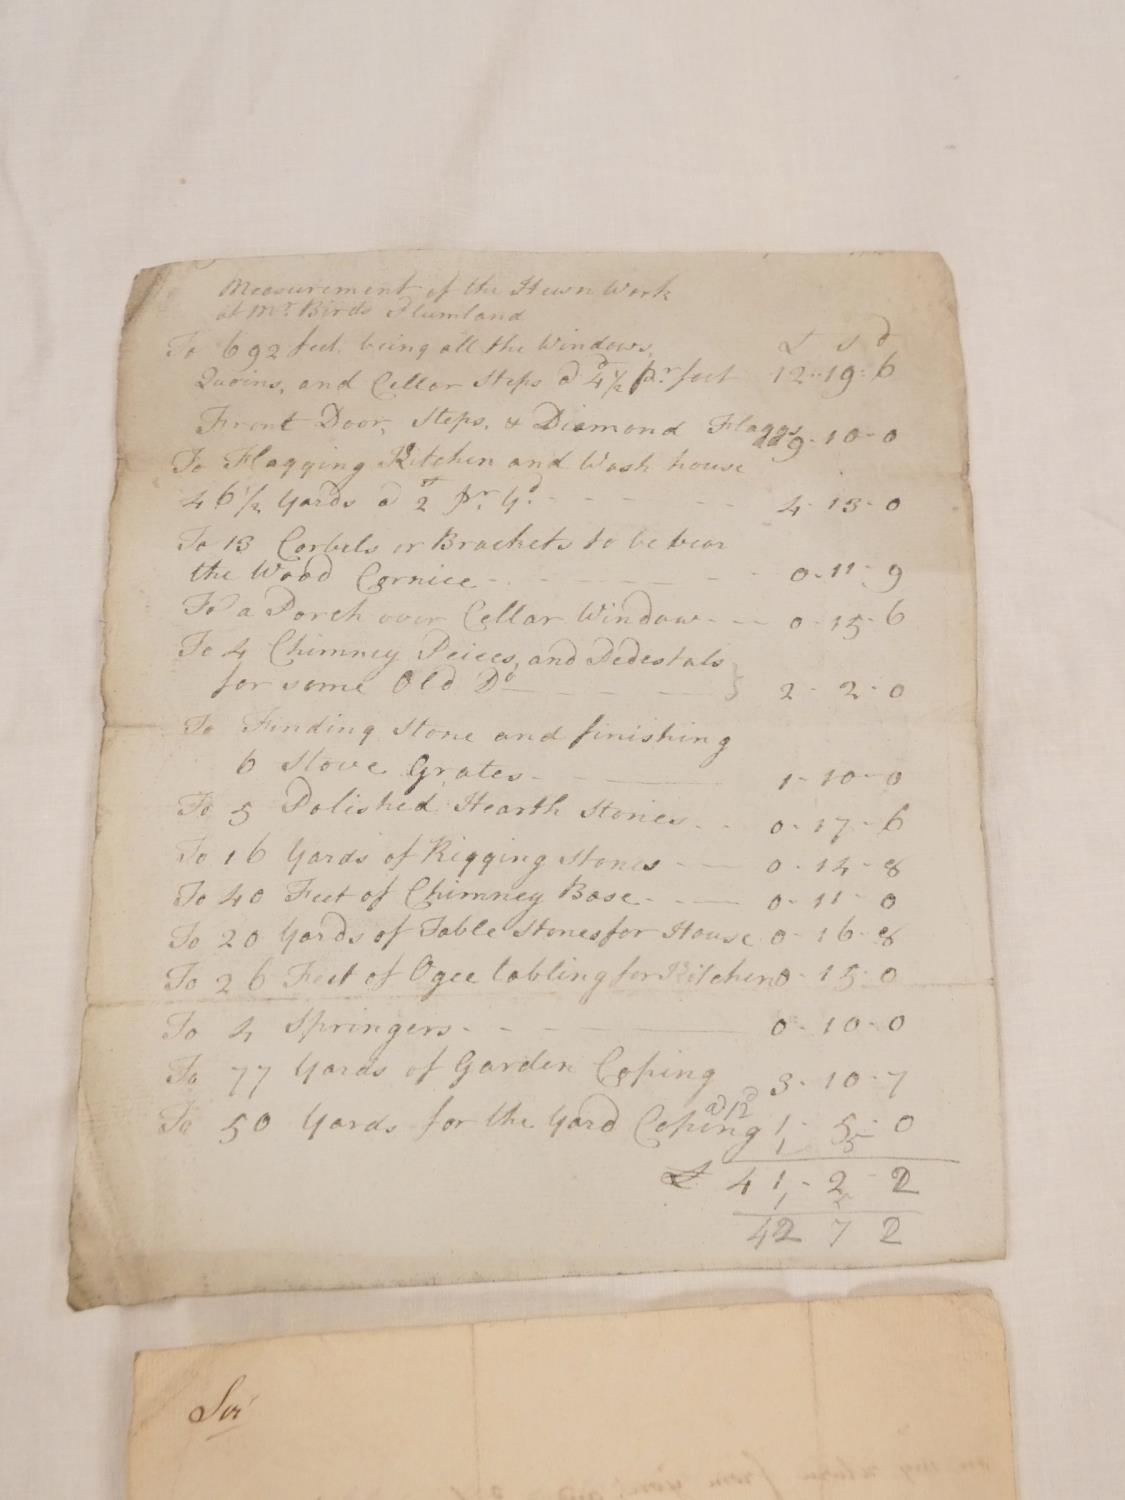 Measurement of the Hewn Work
at Mr. Birds Plumland
£ s d
To 692 feet, being all the Windows,
Quoins, and Cellar Steps @ 4½ d pr. foot 12-19-6
Front Door, Steps, & Diamond Flaggs 9-10-0
To Flagging Kitchen and Wash house
46½ Yards @ 2 st pr. Yd. - - - - 4-13-0
To 13 Corbels or Brackets to be bear
the Wood Cornice - - - - - - 0-11-9
To a Porch over Cellar Window - - - 0-15-6
To 4 Chimney Peices, and Pedestals
for some Old Do - - - - } 2-2-0
To Finding Stone and finishing
6 Stove Grates - - - 1-10-0
To 5 Polished Hearth Stones - - 0-17-6
To 16 Yards of Rigging Stones - - 0-14-8
To 40 Feet of Chimney Base - - - 0-11-0
To 20 Yards of Table Stones for House 0-16-8
To 26 Feet of Ogee tabling for Kitchen 0-15-0
To 4 Springers - - - - 0-10-0
To 77 Yards of Garden Coping 3-10-7
To 50 Yards for the Yard Coping 1-5-0
£ 41-2-2
42 7 2
Sir
on my return from